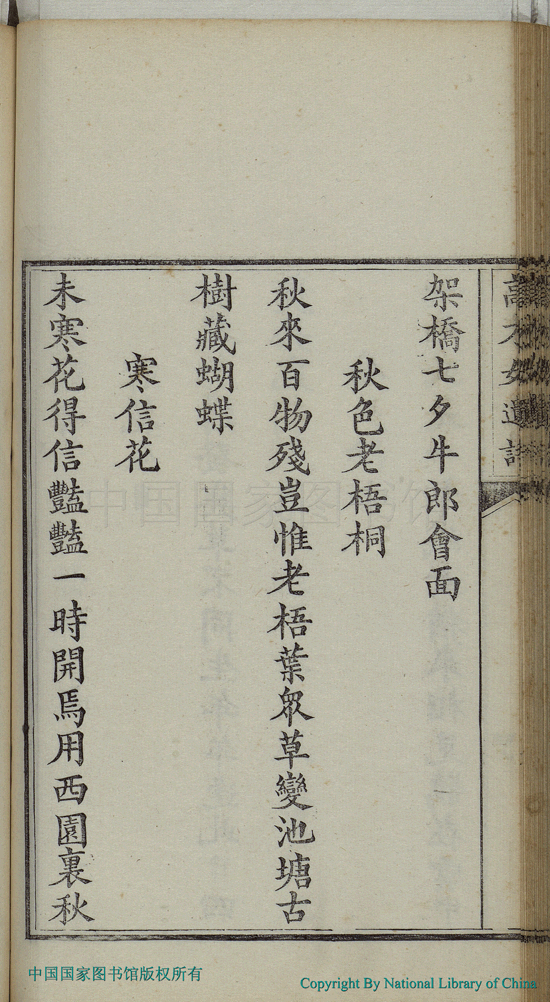 架橋七夕牛郎會面
秋色老梧桐
秋來百物殘豈惟老梧葉眾草變池塘古
樹藏蝴蝶
寒信花
未寒花得信豔豔一時開焉用西園裏秋
中国国家图书馆
中国国家图书馆版权所有
Copyright By National Library of China